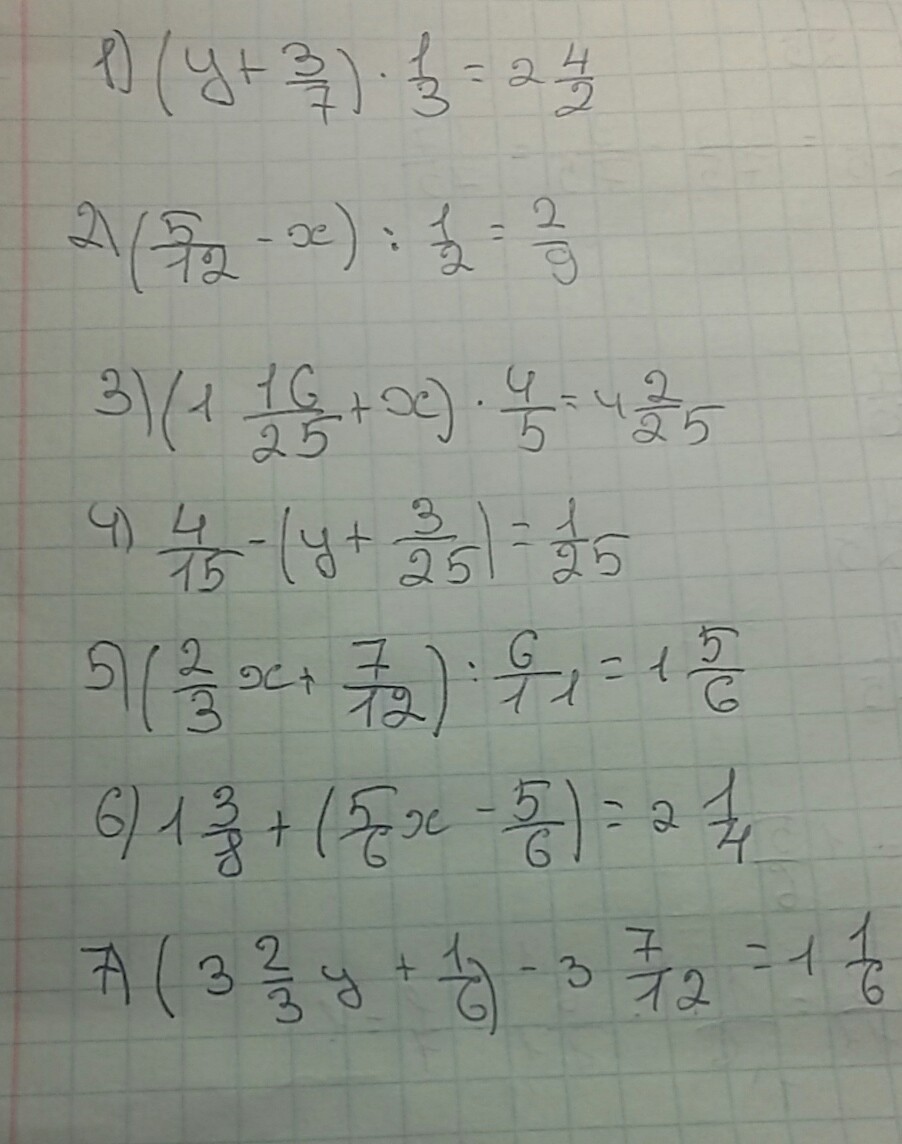 1) (y + 3/7) · 1/3 = 2 4/2
2) (5/12 - x) : 1/2 = 2/9
3) (1 16/25 + x) · 4/5 = 4 2/25
4) 4/15 - (y + 3/25) = 1/25
5) (2/3 x + 7/12) : 6/11 = 1 5/6
6) 1 3/8 + (5/6 x - 5/6) = 2 1/4
7) (3 2/3 y + 1/6) - 3 7/12 = 1 1/6